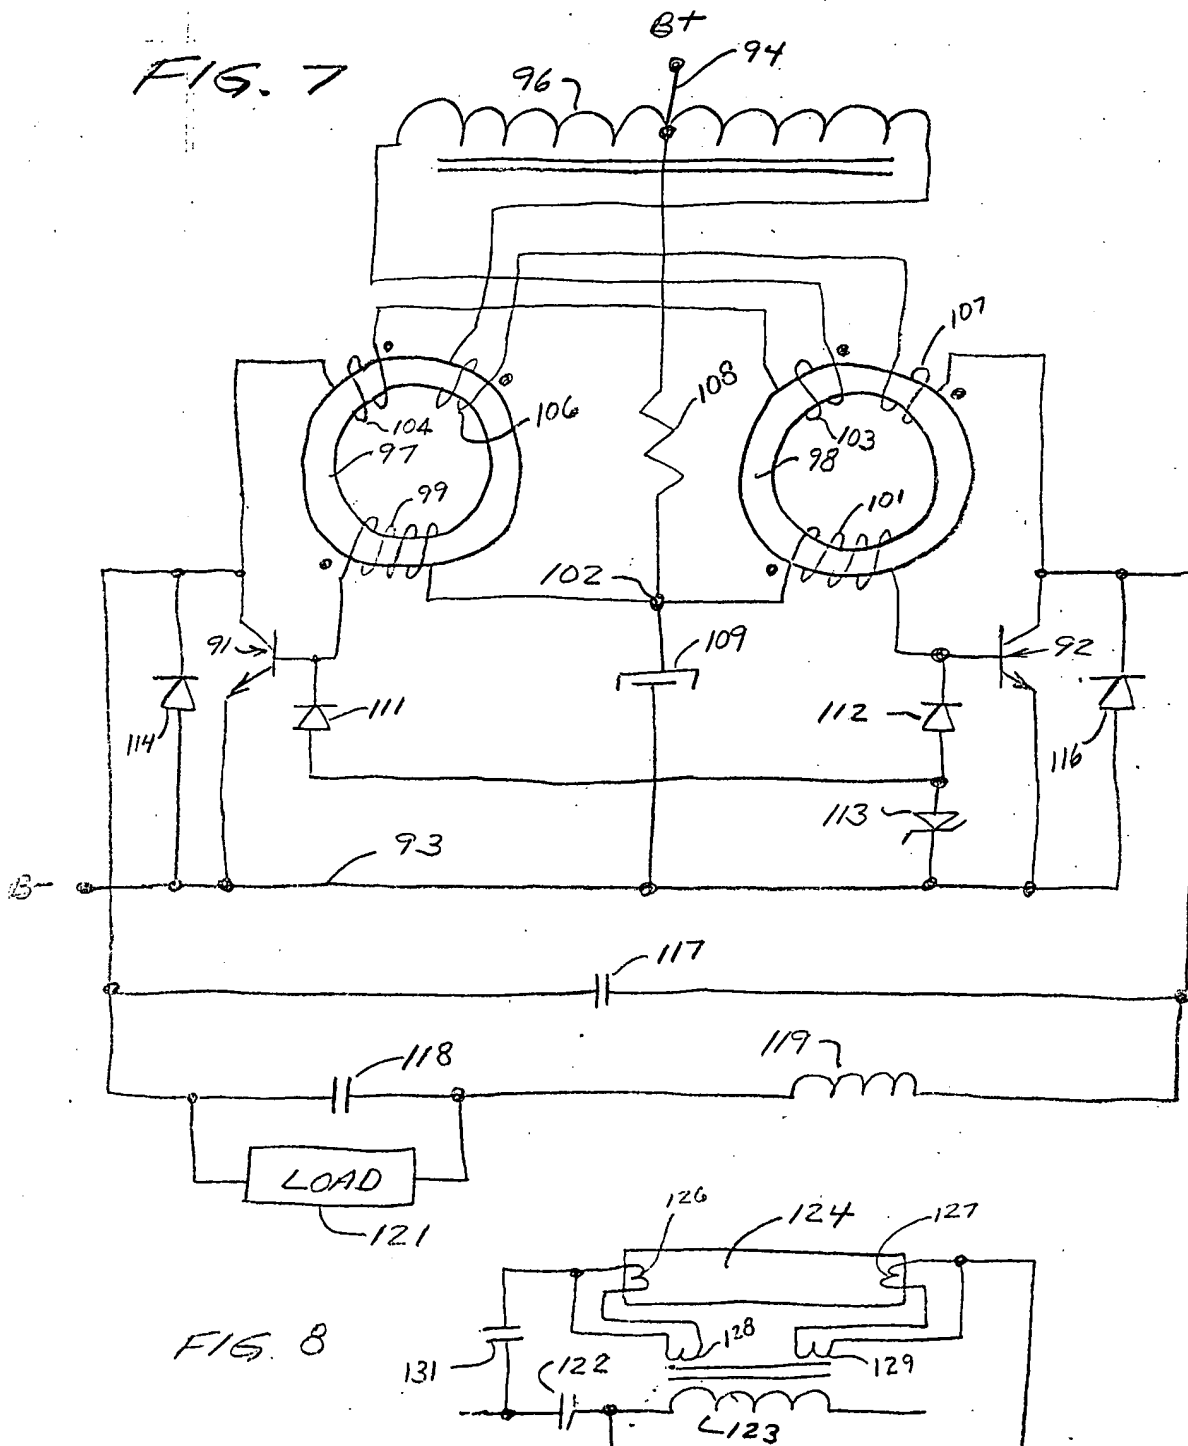 FIG. 7
B+
94
96
107
108
104
106
97
103
98
99
101
102
109
91
92
111
112
114
116
113
93
B-
117
118
119
LOAD
121
126
124
127
FIG. 8
128
129
131
122
123